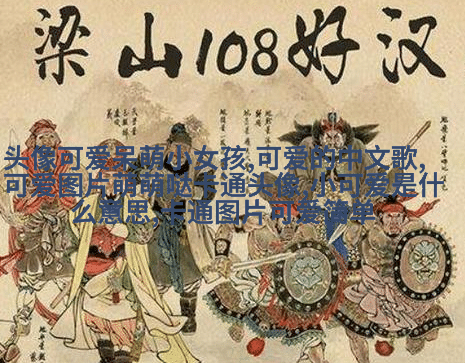 梁山108好汉
头像可爱呆萌小女孩,可爱的中文歌,
可爱图片萌萌哒卡通头像,小可爱是什
么意思,卡通图片可爱简单